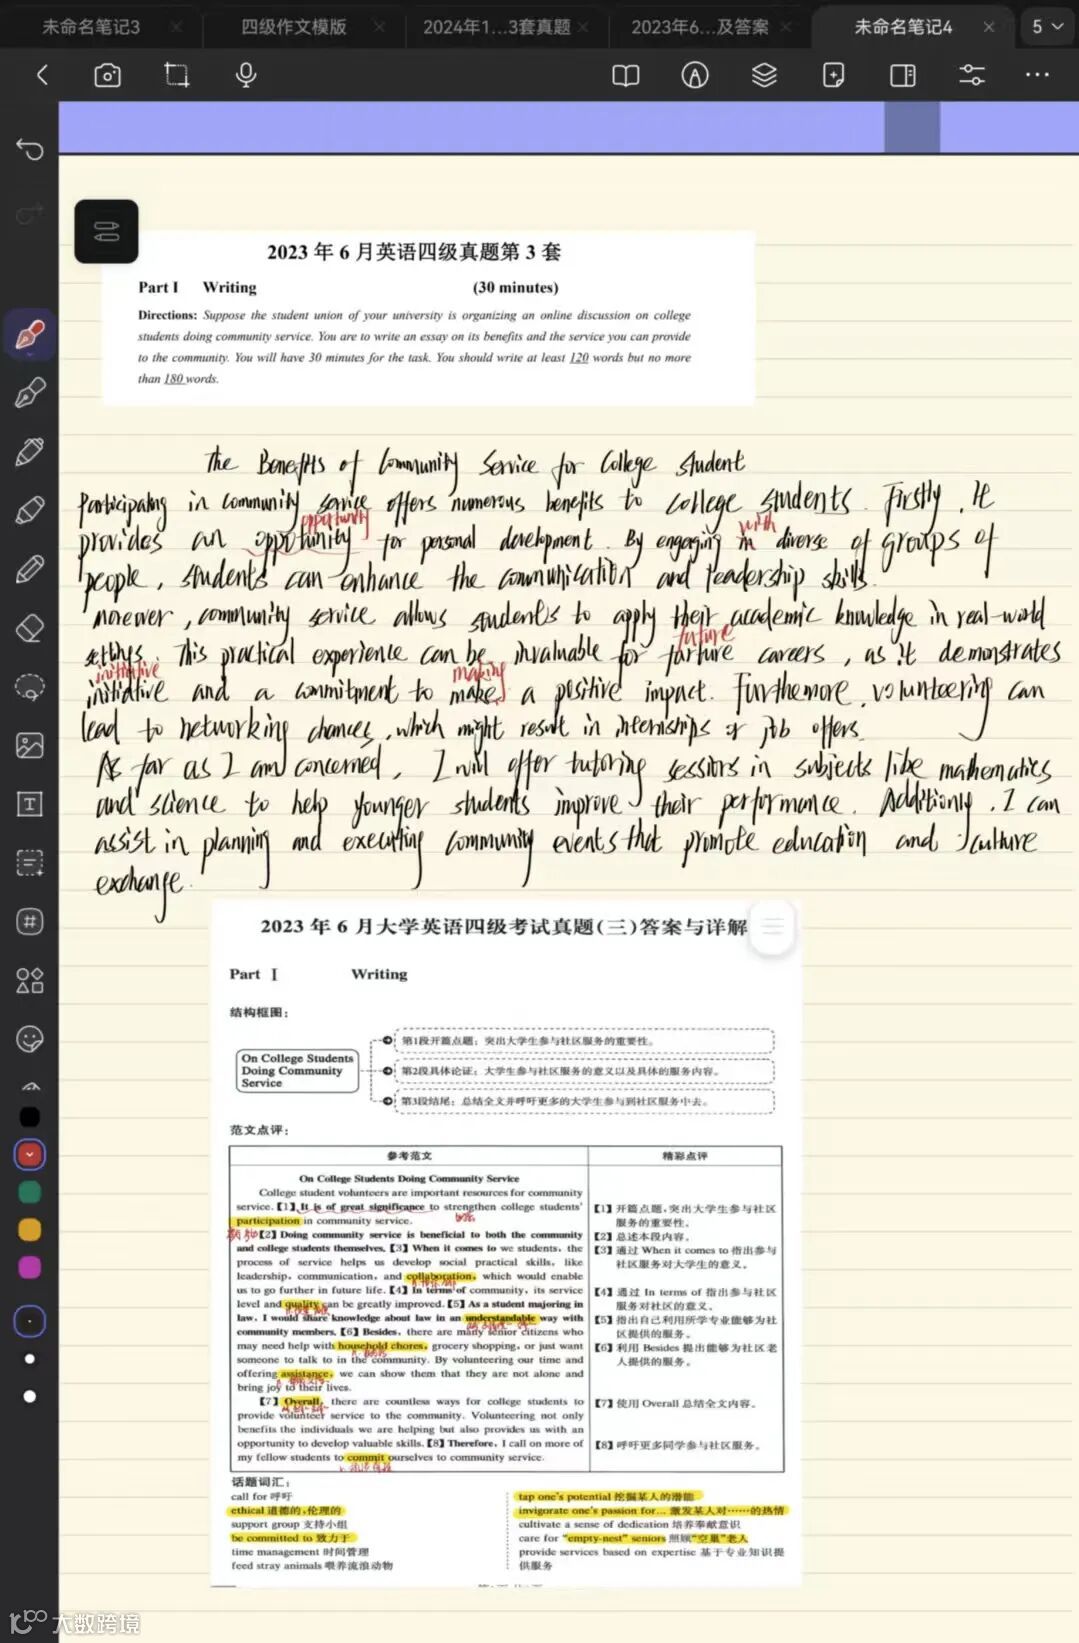 未命名笔记3
四级作文模版
2024年1...3套真题
2023年6...及答案
未命名笔记4
5
2023 年 6 月英语四级真题第 3 套
Part I Writing (30 minutes)
Directions: Suppose the student union of your university is organizing an online discussion on college
students doing community service. You are to write an essay on its benefits and the service you can provide
to the community. You will have 30 minutes for the task. You should write at least 120 words but no more
than 180 words.
The Benefits of Community Service for College Student
Participating in community service offers numerous benefits to college students. Firstly, It
opportunity with
provides an oppotunity for personal development. By engaging in diverse of groups of
people, students can enhance the communication and leadership skills.
moreover, community service allows students to apply their academic knowledge in real-world
future
settings. This practical experience can be invaluable for farture careers, as it demonstrates
initiative making
initiative and a commitment to make a positive impact. Furthermore, volunteering can
lead to networking chances, which might result in internships or job offers.
As far as I am concerned, I will offer tutoring sessions in subjects like mathematics
and science to help younger students improve their performance. Additionly, I can
assist in planning and executing community events that promote education and culture
exchange.
2023 年 6 月大学英语四级考试真题(三)答案与详解
Part Ⅰ Writing
结构框图:
On College Students
Doing Community
Service
第1段开篇点题:突出大学生参与社区服务的重要性。
第2段具体论证:大学生参与社区服务的意义以及具体的服务内容。
第3段结尾:总结全文并呼吁更多的大学生参与到社区服务中去。
范文点评:
参考范文 精彩点评
On College Students Doing Community Service
College student volunteers are important resources for community
service.【1】It is of great significance to strengthen college students'
participation in community service.
【2】Doing community service is beneficial to both the community
and college students themselves.【3】When it comes to we students, the
process of service helps us develop social practical skills, like
leadership, communication, and collaboration, which would enable
us to go further in future life.【4】In terms of community, its service
level and quality can be greatly improved.【5】As a student majoring in
law, I would share knowledge about law in an understandable way with
community members.【6】Besides, there are many senior citizens who
may need help with household chores, grocery shopping, or just want
someone to talk to in the community. By volunteering our time and
offering assistance, we can show them that they are not alone and
bring joy to their lives.
【7】Overall, there are countless ways for college students to
provide volunteer service to the community. Volunteering not only
benefits the individuals we are helping but also provides us with an
opportunity to develop valuable skills.【8】Therefore, I call on more of
my fellow students to commit ourselves to community service.
【1】开篇点题,突出大学生参与社区
服务的重要性。
【2】总述本段内容。
【3】通过 When it comes to 指出参与
社区服务对大学生的意义。
【4】通过 In terms of 指出参与社区
服务对社区的意义。
【5】指出自己利用所学专业能够为社
区提供的服务。
【6】利用 Besides 提出能够为社区老
人提供的服务。
【7】使用 Overall 总结全文内容。
【8】呼吁更多同学参与社区服务。
话题词汇:
call for 呼吁
ethical 道德的,伦理的
support group 支持小组
be committed to 致力于
time management 时间管理
feed stray animals 喂养流浪动物
tap one's potential 挖掘某人的潜能
invigorate one's passion for... 激发某人对……的热情
cultivate a sense of dedication 培养奉献意识
care for "empty-nest" seniors 照顾"空巢"老人
provide services based on expertise 基于专业知识提
供服务
大数跨境